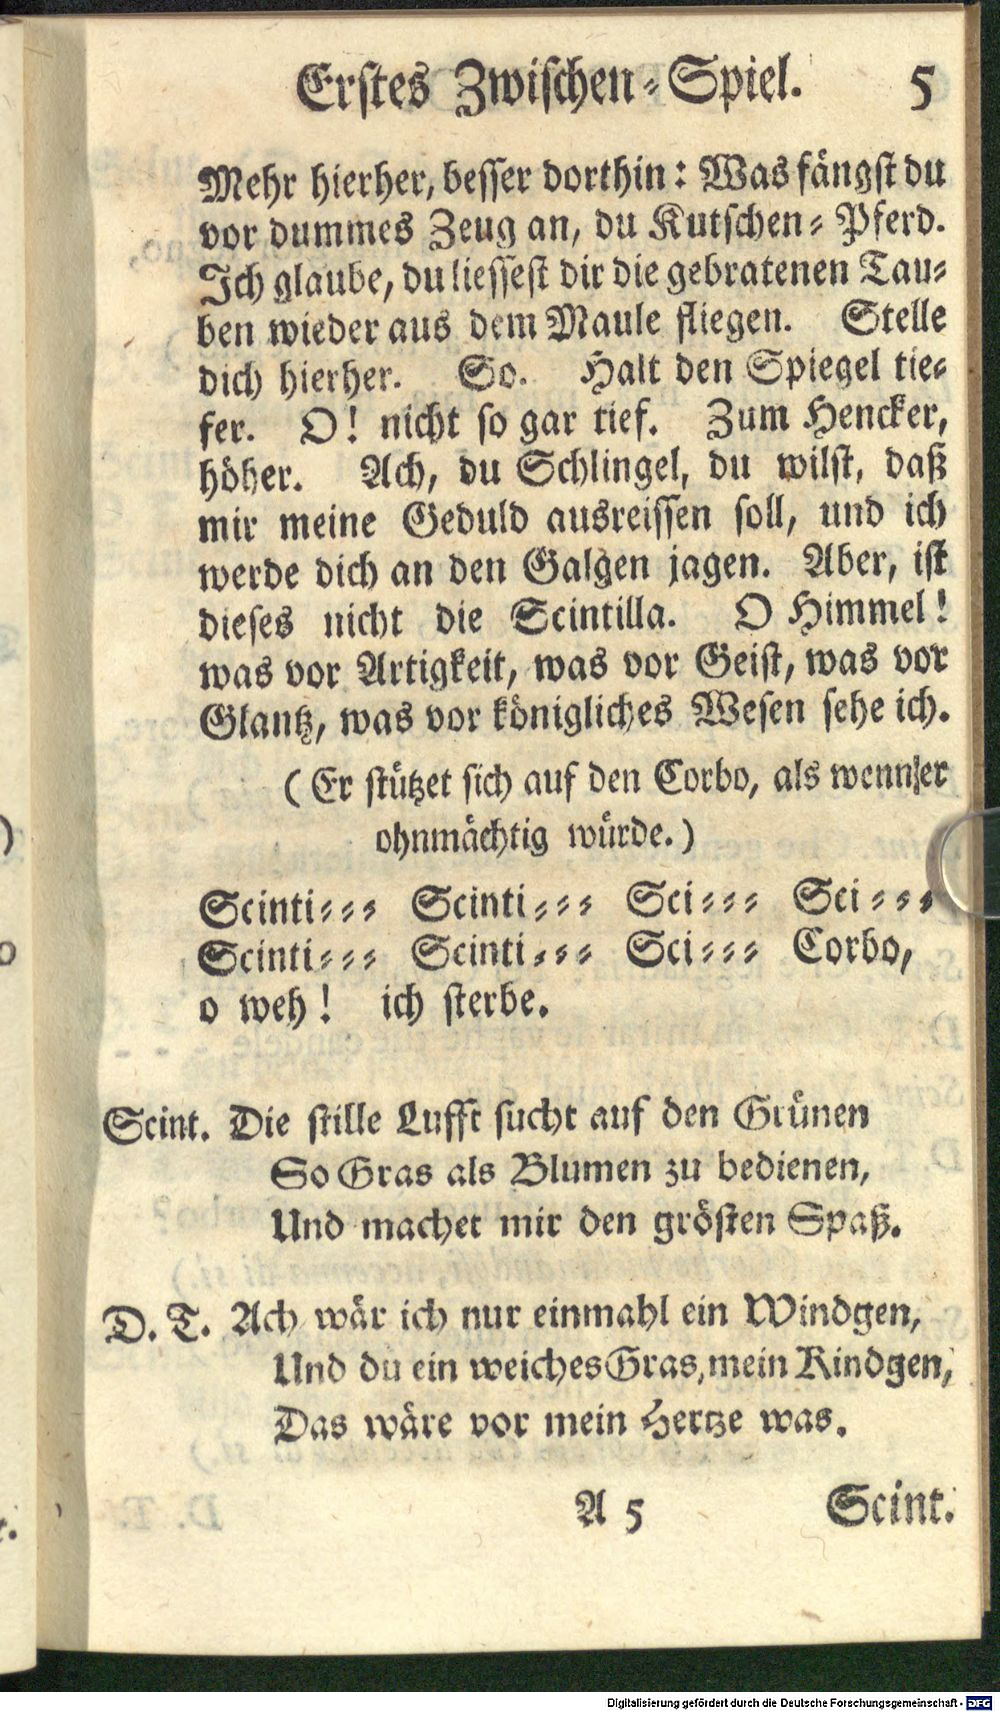 Erstes Zwischen-Spiel. 5
Mehr hierher, besser dorthin: Was fängst du
vor dummes Zeug an, du Kutschen-Pferd.
Ich glaube, du liessest dir die gebratenen Tau-
ben wieder aus dem Maule fliegen. Stelle
dich hierher. So. Halt den Spiegel tie-
fer. O! nicht so gar tief. Zum Hencker,
höher. Ach, du Schlingel, du wilst, daß
mir meine Geduld ausreissen soll, und ich
werde dich an den Galgen jagen. Aber, ist
dieses nicht die Scintilla. O Himmel!
was vor Artigkeit, was vor Geist, was vor
Glantz, was vor königliches Wesen sehe ich.
(Er stützet sich auf den Corbo, als wenn er
ohnmächtig würde.)
Scinti--- Scinti--- Sci--- Sci---
Scinti--- Scinti--- Sci--- Corbo,
o weh! ich sterbe.
Scint. Die stille Lufft sucht auf den Grünen
So Gras als Blumen zu bedienen,
Und machet mir den grösten Spaß.
D. T. Ach wär ich nur einmahl ein Windgen,
Und du ein weiches Gras, mein Kindgen,
Das wäre vor mein Hertze was.
A 5 Scint.
Digitalisierung gefördert durch die Deutsche Forschungsgemeinschaft - DFG